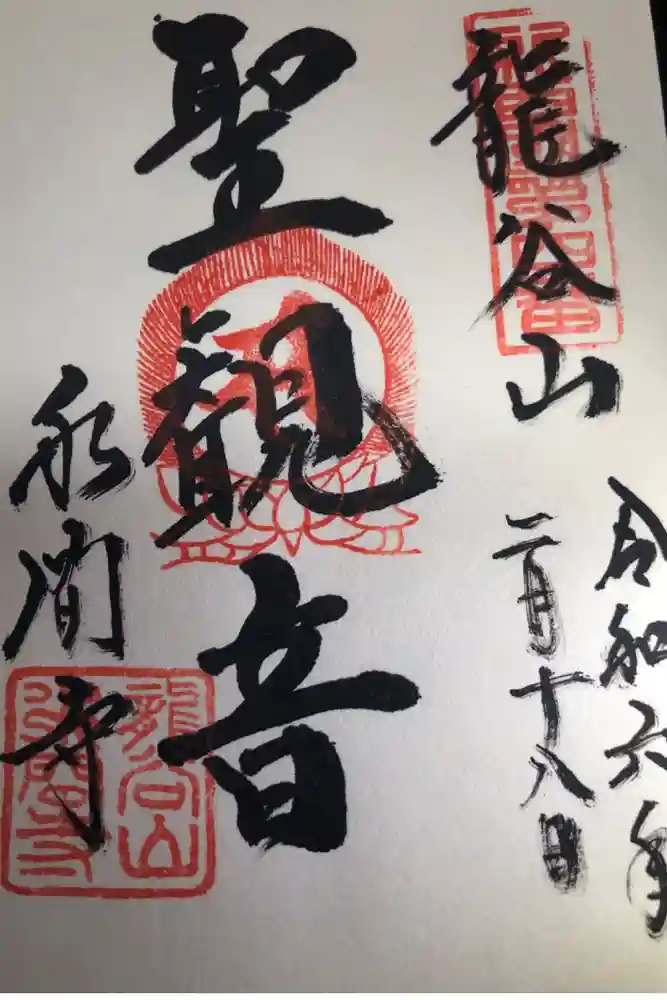 龍谷山
令和六年
二月十八日
聖観音
永間寺
龍谷山